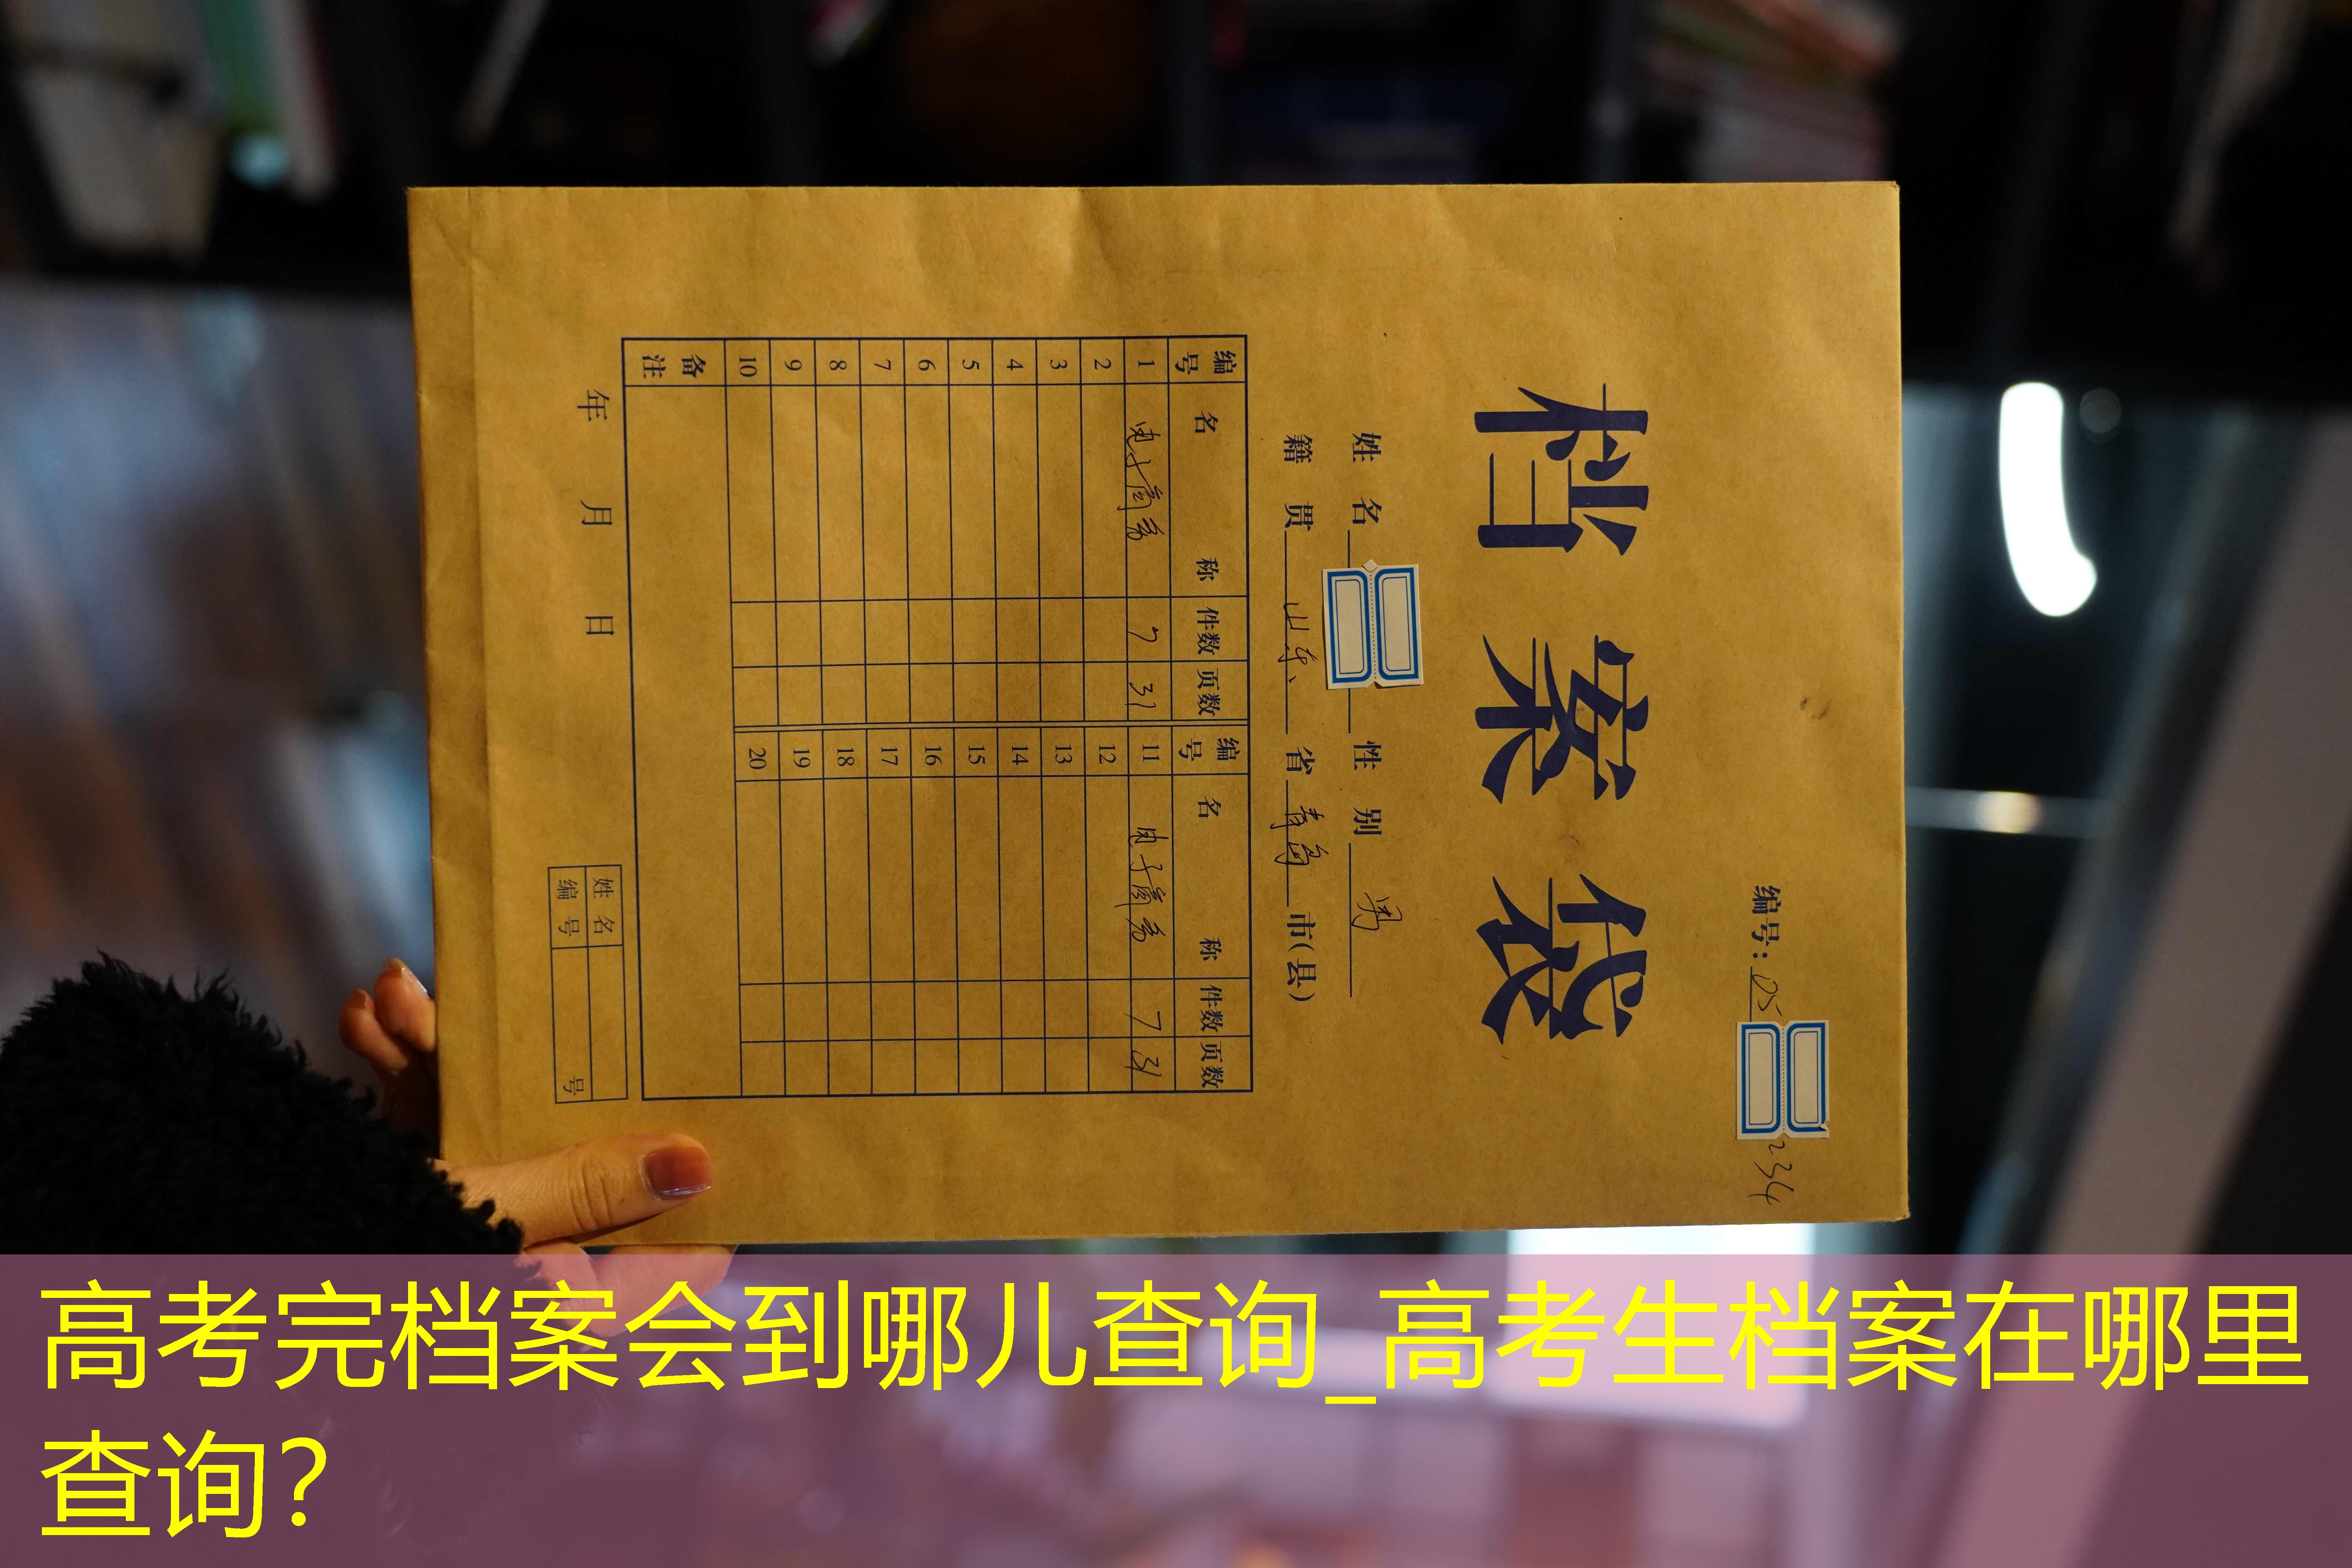 编号：05 234
档案袋
姓名 性别 男
籍贯 山东 省 青岛 市(县)
编号 名称 件数 页数 编号 名称 件数 页数
1 电子商务 7 31 11 电子商务 7 31
2 12
3 13
4 14
5 15
6 16
7 17
8 18
9 19
10 20
备注
年 月 日
姓名
编号 号
高考完档案会到哪儿查询_高考生档案在哪里
查询？